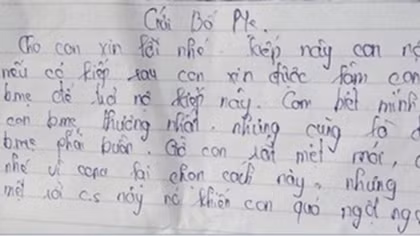 Gửi Bố Mẹ.
Cho con xin lỗi nhé. Kiếp này con nợ
nếu có kiếp sau con xin được làm con
bmẹ để trả nợ kiếp này. Con biết mình
con bmẹ thương nhất. nhưng cũng là
bmẹ phải buồn. Giờ con rất mệt mỏi,
nhé vì con lại chọn cách này, nhưng
mệt rồi c.s này nó khiến con quá ngột ngạ